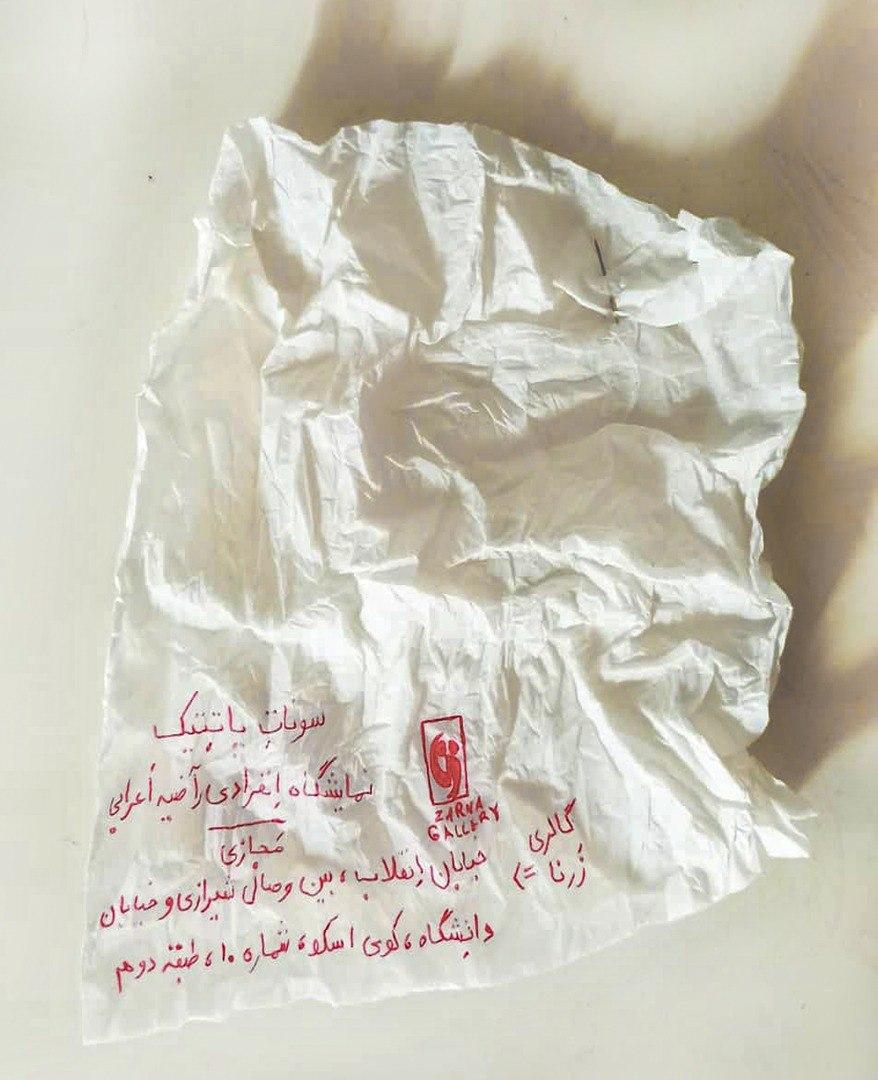 سونات پاتتیک
نمایشگاه اِنفرادی رآضیه اَعرابی
مَجازی
ZARNA
GALLERY
گالری
زُرنا =>
خیابان اِنقلاب، بین وصال شیرازی و خیابان
دانشگاه، کوی اسکو، شماره ۱۰، طبقه دوم